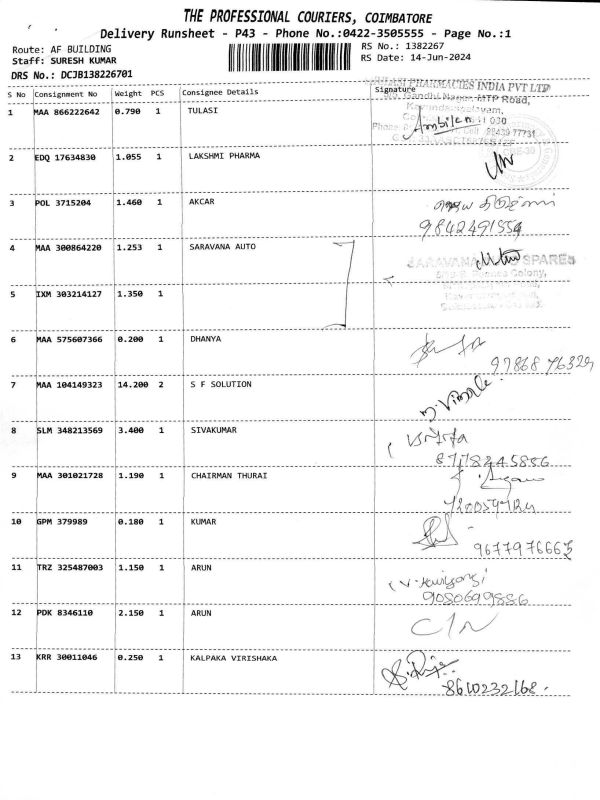 THE PROFESSIONAL COURIERS, COIMBATORE
Delivery Runsheet - P43 - Phone No.:0422-3505555 - Page No.:1
Route: AF BUILDING
RS No.: 1382267
Staff: SURESH KUMAR
RS Date: 14-Jun-2024
DRS No.: DCJB138226701
S No Consignment No Weight PCS Consignee Details Signature
PHARMACIES INDIA PVT LTD
Gandhi Nagar, MTP Road,
1 MAA 866222642 0.790 1 TULASI
2 EDQ 17634830 1.055 1 LAKSHMI PHARMA
3 POL 3715204 1.460 1 AKCAR
9842491554
4 MAA 300864220 1.253 1 SARAVANA AUTO
SARAVANA SPARES
Colony,
5 IXM 303214127 1.350 1
6 MAA 575607366 0.200 1 DHANYA
97868 76329
7 MAA 104149323 14.200 2 S F SOLUTION
8 SLM 348213569 3.400 1 SIVAKUMAR
8778245856
9 MAA 301021728 1.190 1 CHAIRMAN THURAI
10 GPM 379989 0.180 1 KUMAR
9677976663
11 TRZ 325487003 1.150 1 ARUN
9080699886
12 PDK 8346110 2.150 1 ARUN
C/N
13 KRR 30011046 0.250 1 KALPAKA VIRISHAKA
8610232168.